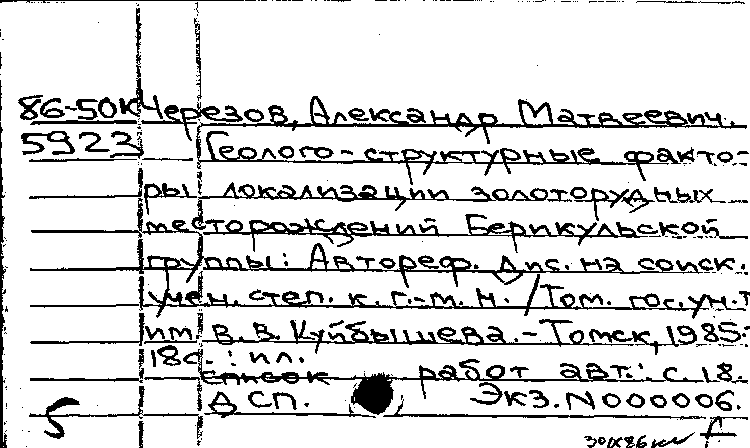 86-50К Черезов, Александр Матвеевич.
5923 Геолого-структурные факто-
ры локализации золоторудных
месторождений Берикульской
группы: Автореф. дис. на соиск.
учен. степ. к. г.-м. н. /Том. гос. ун-т
им. В. В. Куйбышева.-Томск, 1985.
18с.: ил.
список работ авт.: с. 18.
ДСП. Экз. N000006.
5